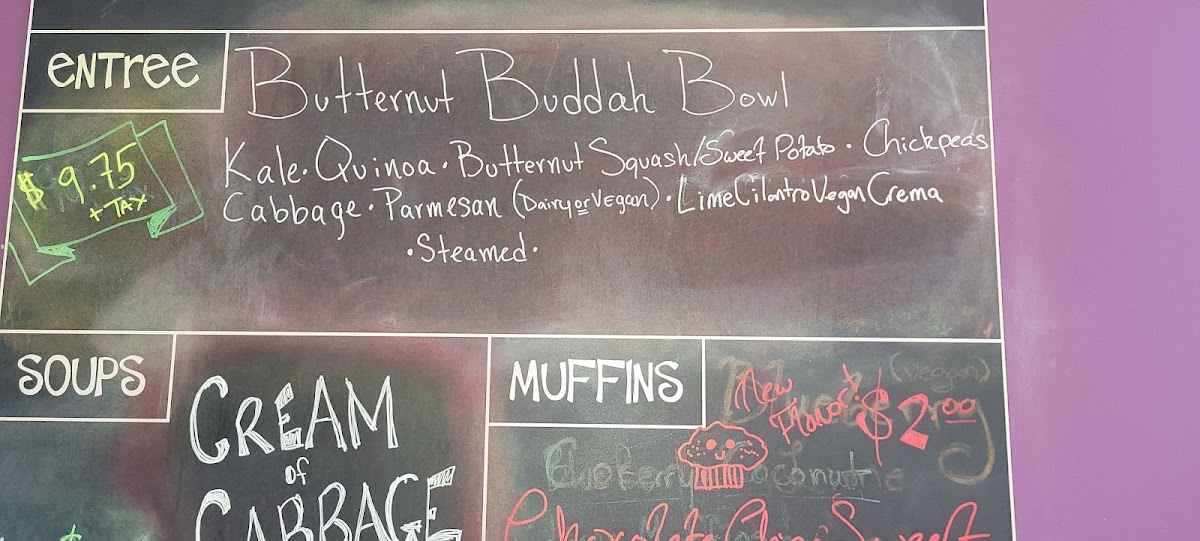 ENTree
Butternut Buddah Bowl
$9.75
+ TAX
Kale • Quinoa • Butternut Squash/Sweet Potato • Chickpeas
Cabbage • Parmesan (Dairy or Vegan) • Lime Cilantro Vegan Crema
• Steamed •
SOUPS
CREAM
of
CABBAGE
MUFFINS
(vegan)
New
Flavor!
$2.00
Blueberry Coconut
Chocolate Chip Sweet